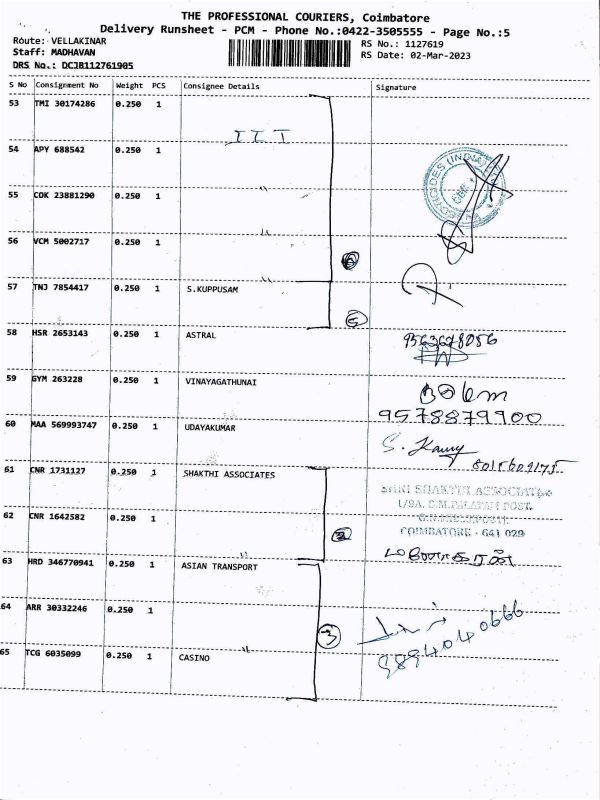 THE PROFESSIONAL COURIERS, Coimbatore
Delivery Runsheet - PCM - Phone No.:0422-3505555 - Page No.:5
Route: VELLAKINAR
RS No.: 1127619
Staff: MADHAVAN
RS Date: 02-Mar-2023
DRS No.: DCJB112761905
S No Consignment No Weight PCS Consignee Details Signature
53 TMI 30174286 0.250 1
I I I
54 APY 688542 0.250 1
55 COK 23881290 0.250 1
56 VCM 5002717 0.250 1
57 TNJ 7854417 0.250 1 S.KUPPUSAM
58 HSR 2653143 0.250 1 ASTRAL
59 GYM 263228 0.250 1 VINAYAGATHUNAI
9578879900
60 MAA 569993747 0.250 1 UDAYAKUMAR
61 CNR 1731127 0.250 1 SHAKTHI ASSOCIATES
SHRI SHAKTHI ASSOCIATES
62 CNR 1642582 0.250 1
2
COIMBATORE - 641 029
63 HRD 346770941 0.250 1 ASIAN TRANSPORT
64 ARR 30332246 0.250 1
3
9894040666
65 TCG 6035099 0.250 1 CASINO